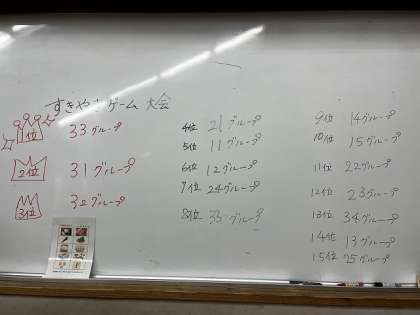 すきやきゲーム 大会
1位 33グループ
2位 31グループ
3位 32グループ
4位 21グループ
5位 11グループ
6位 12グループ
7位 24グループ
8位 33グループ
9位 14グループ
10位 15グループ
11位 22グループ
12位 23グループ
13位 34グループ
14位 13グループ
15位 25グループ